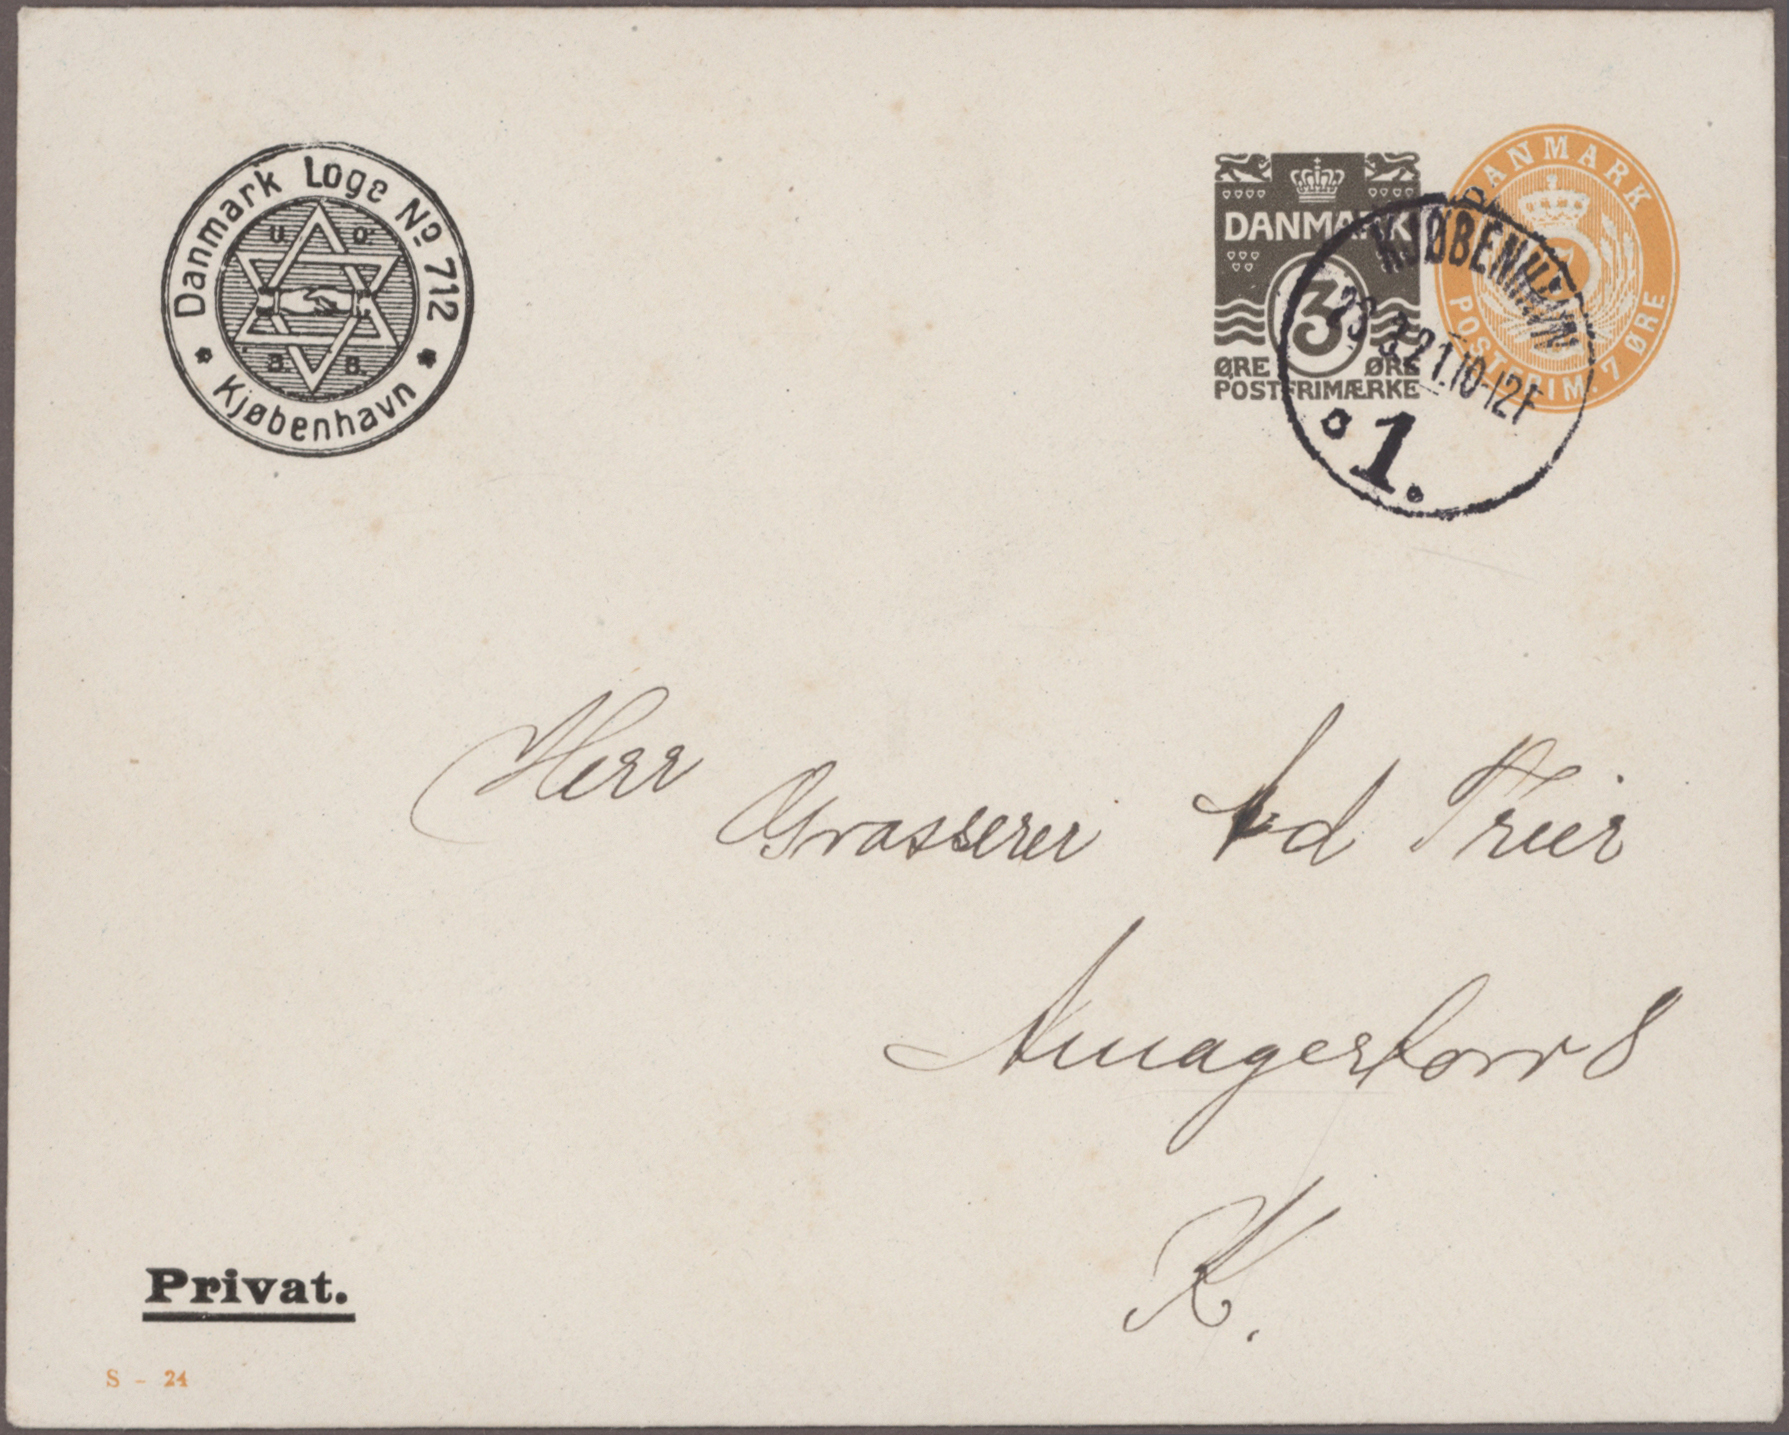 Danmark Loge No 712
U. O.
B. B.
Kjøbenhavn
DANMARK
3
ØRE ØRE
POSTFRIMÆRKE
DANMARK
POSTFRIM. 7 ØRE
KJØBENHAVN
23.3.21.10-12F
1.
Herr Grosserer Ad Trier
Amagertorv 8
K.
Privat.
S - 24